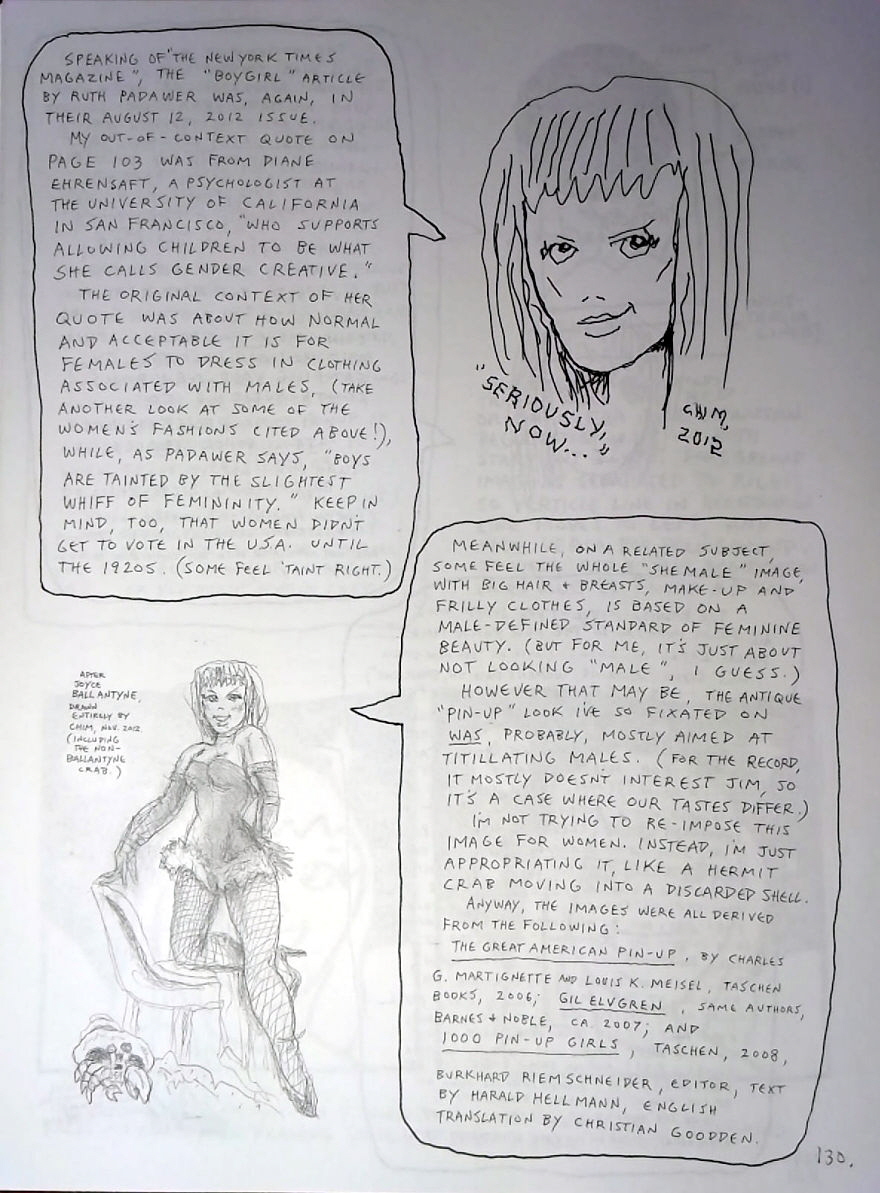 SPEAKING OF "THE NEW YORK TIMES
MAGAZINE", THE "BOYGIRL" ARTICLE
BY RUTH PADAWER WAS, AGAIN, IN
THEIR AUGUST 12, 2012 ISSUE.
MY OUT-OF-CONTEXT QUOTE ON
PAGE 103 WAS FROM DIANE
EHRENSAFT, A PSYCHOLOGIST AT
THE UNIVERSITY OF CALIFORNIA
IN SAN FRANCISCO, "WHO SUPPORTS
ALLOWING CHILDREN TO BE WHAT
SHE CALLS GENDER CREATIVE."
THE ORIGINAL CONTEXT OF HER
QUOTE WAS ABOUT HOW NORMAL
AND ACCEPTABLE IT IS FOR
FEMALES TO DRESS IN CLOTHING
ASSOCIATED WITH MALES, (TAKE
ANOTHER LOOK AT SOME OF THE
WOMEN'S FASHIONS CITED ABOVE!),
WHILE, AS PADAWER SAYS, "BOYS
ARE TAINTED BY THE SLIGHTEST
WHIFF OF FEMININITY." KEEP IN
MIND, TOO, THAT WOMEN DIDN'T
GET TO VOTE IN THE U.S.A. UNTIL
THE 1920S. (SOME FEEL 'TAINT RIGHT.)
"SERIOUSLY,
NOW..."
CHIM,
2012
MEANWHILE, ON A RELATED SUBJECT,
SOME FEEL THE WHOLE "SHEMALE" IMAGE,
WITH BIG HAIR + BREASTS, MAKE-UP AND
FRILLY CLOTHES, IS BASED ON A
MALE-DEFINED STANDARD OF FEMININE
BEAUTY. (BUT FOR ME, IT'S JUST ABOUT
NOT LOOKING "MALE", I GUESS.)
HOWEVER THAT MAY BE, THE ANTIQUE
"PIN-UP" LOOK I'VE SO FIXATED ON
WAS, PROBABLY, MOSTLY AIMED AT
TITILLATING MALES. (FOR THE RECORD,
IT MOSTLY DOESN'T INTEREST JIM, SO
IT'S A CASE WHERE OUR TASTES DIFFER.)
I'M NOT TRYING TO RE-IMPOSE THIS
IMAGE FOR WOMEN. INSTEAD, I'M JUST
APPROPRIATING IT, LIKE A HERMIT
CRAB MOVING INTO A DISCARDED SHELL.
ANYWAY, THE IMAGES WERE ALL DERIVED
FROM THE FOLLOWING:
THE GREAT AMERICAN PIN-UP, BY CHARLES
G. MARTIGNETTE AND LOUIS K. MEISEL, TASCHEN
BOOKS, 2006; GIL ELVGREN, SAME AUTHORS,
BARNES + NOBLE, CA. 2007; AND
1000 PIN-UP GIRLS, TASCHEN, 2008,
BURKHARD RIEMSCHNEIDER, EDITOR, TEXT
BY HARALD HELLMANN, ENGLISH
TRANSLATION BY CHRISTIAN GOODDEN.
AFTER
JOYCE
BALLANTYNE,
DRAWN
ENTIRELY BY
CHIM, NOV. 2012.
(INCLUDING
THE NON-
BALLANTYNE
CRAB.)
130.